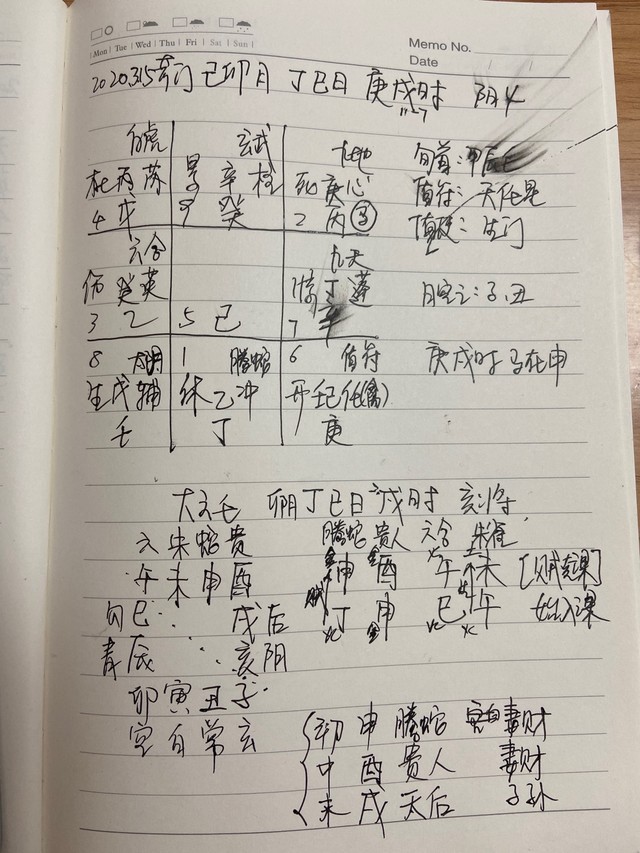 Mon Tue Wed Thu Fri Sat Sun
Memo No.
Date
2020.3.15 奇门 己卯月 丁巳日 庚戌时 阴
白虎 玄武 九地 旬首:甲辰
杜丙芮 景辛柱 死庚心 值符:天任星
4 戊 9 癸 2 丙 值使:生门
六合 九天
伤癸英 惊丁蓬 日空:子、丑
3 乙 5 己 7 辛
8 太阴 1 腾蛇 6 值符 庚戌时 马在申
生戊辅 休乙冲 开己任(禽)
壬 丁 庚
大六壬 卯月丁巳日 戌时 亥将
六 朱 蛇 贵 腾蛇 贵人 六合 朱雀
午 未 申 酉 申 酉 午 未
勾 巳 戌 后 丁 申 巳 午
青 辰 亥 阴
卯 寅 丑 子
空 白 常 玄
初 申 腾蛇 妻财
中 酉 贵人 妻财
末 戌 天后 子孙